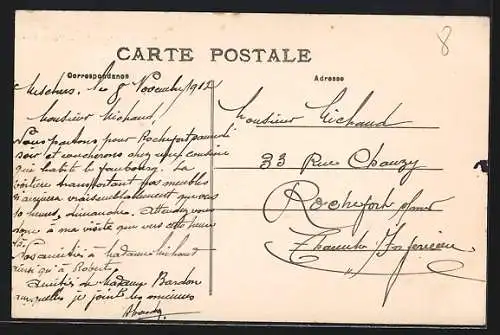 8
CARTE POSTALE
Correspondance
Adresse
le 8 Novembre 1912
Monsieur Michaud,
Nous partons pour Rochefort samedi
soir et coucherons chez une cousine
qui habite le faubourg. La
voiture transportant les meubles
n'arrivera vraisemblablement que vers
10 heures, dimanche. Attendez vous
donc à ma visite que vers cette heure
là.
Nos amitiés à Madame Michaud
ainsi qu'à Robert.
Amitiés de Madame Bardon
auxquelles je joins les miennes
Monsieur Michaud
33 Rue Chanzy
Rochefort s/mer
Charente Inférieure